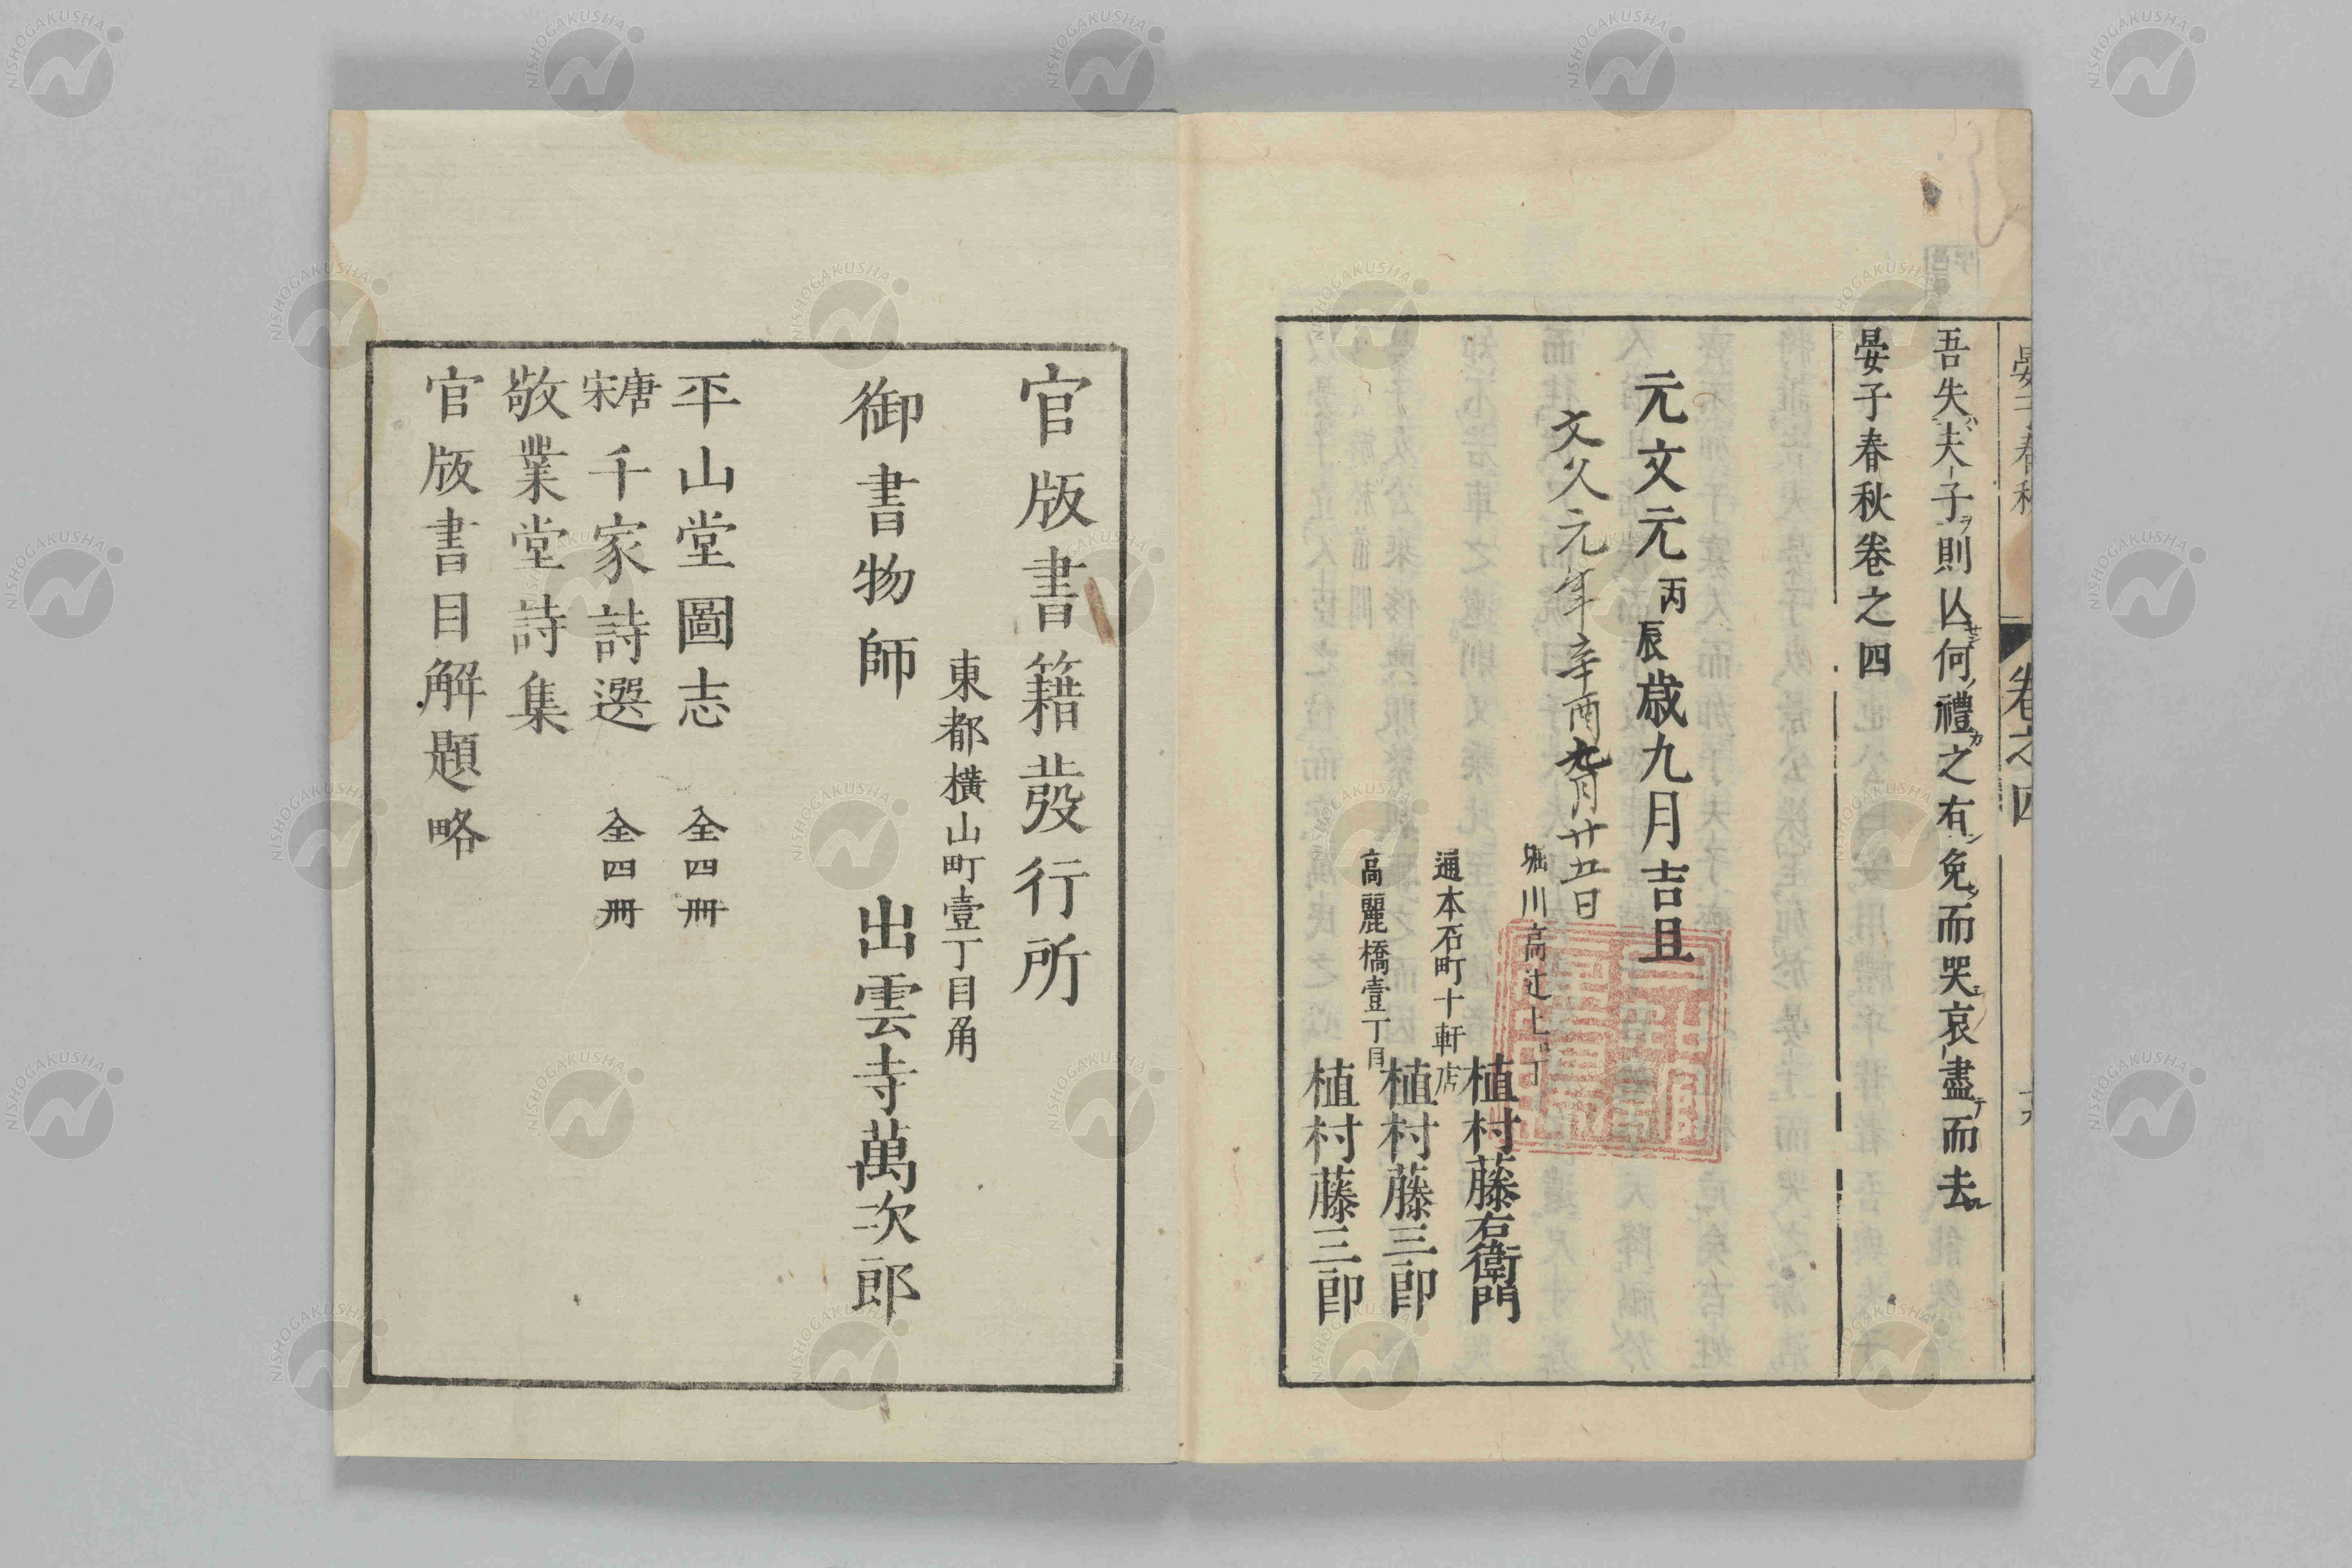 吾失夫子則亾何禮之有免而哭哀盡而去
晏子春秋卷之四
元文元丙辰歲九月吉旦
文久元年辛酉九月廿五日
堀川高辻上ル丁
植村藤右衛門
通本石町十軒店
植村藤三郎
高麗橋壹丁目
植村藤三郎
官版書籍發行所
東都橫山町壹丁目角
御書物師 出雲寺萬次郎
平山堂圖志 全四冊
唐宋千家詩選 全四冊
敬業堂詩集
官版書目解題略
NISHOGAKUSHA